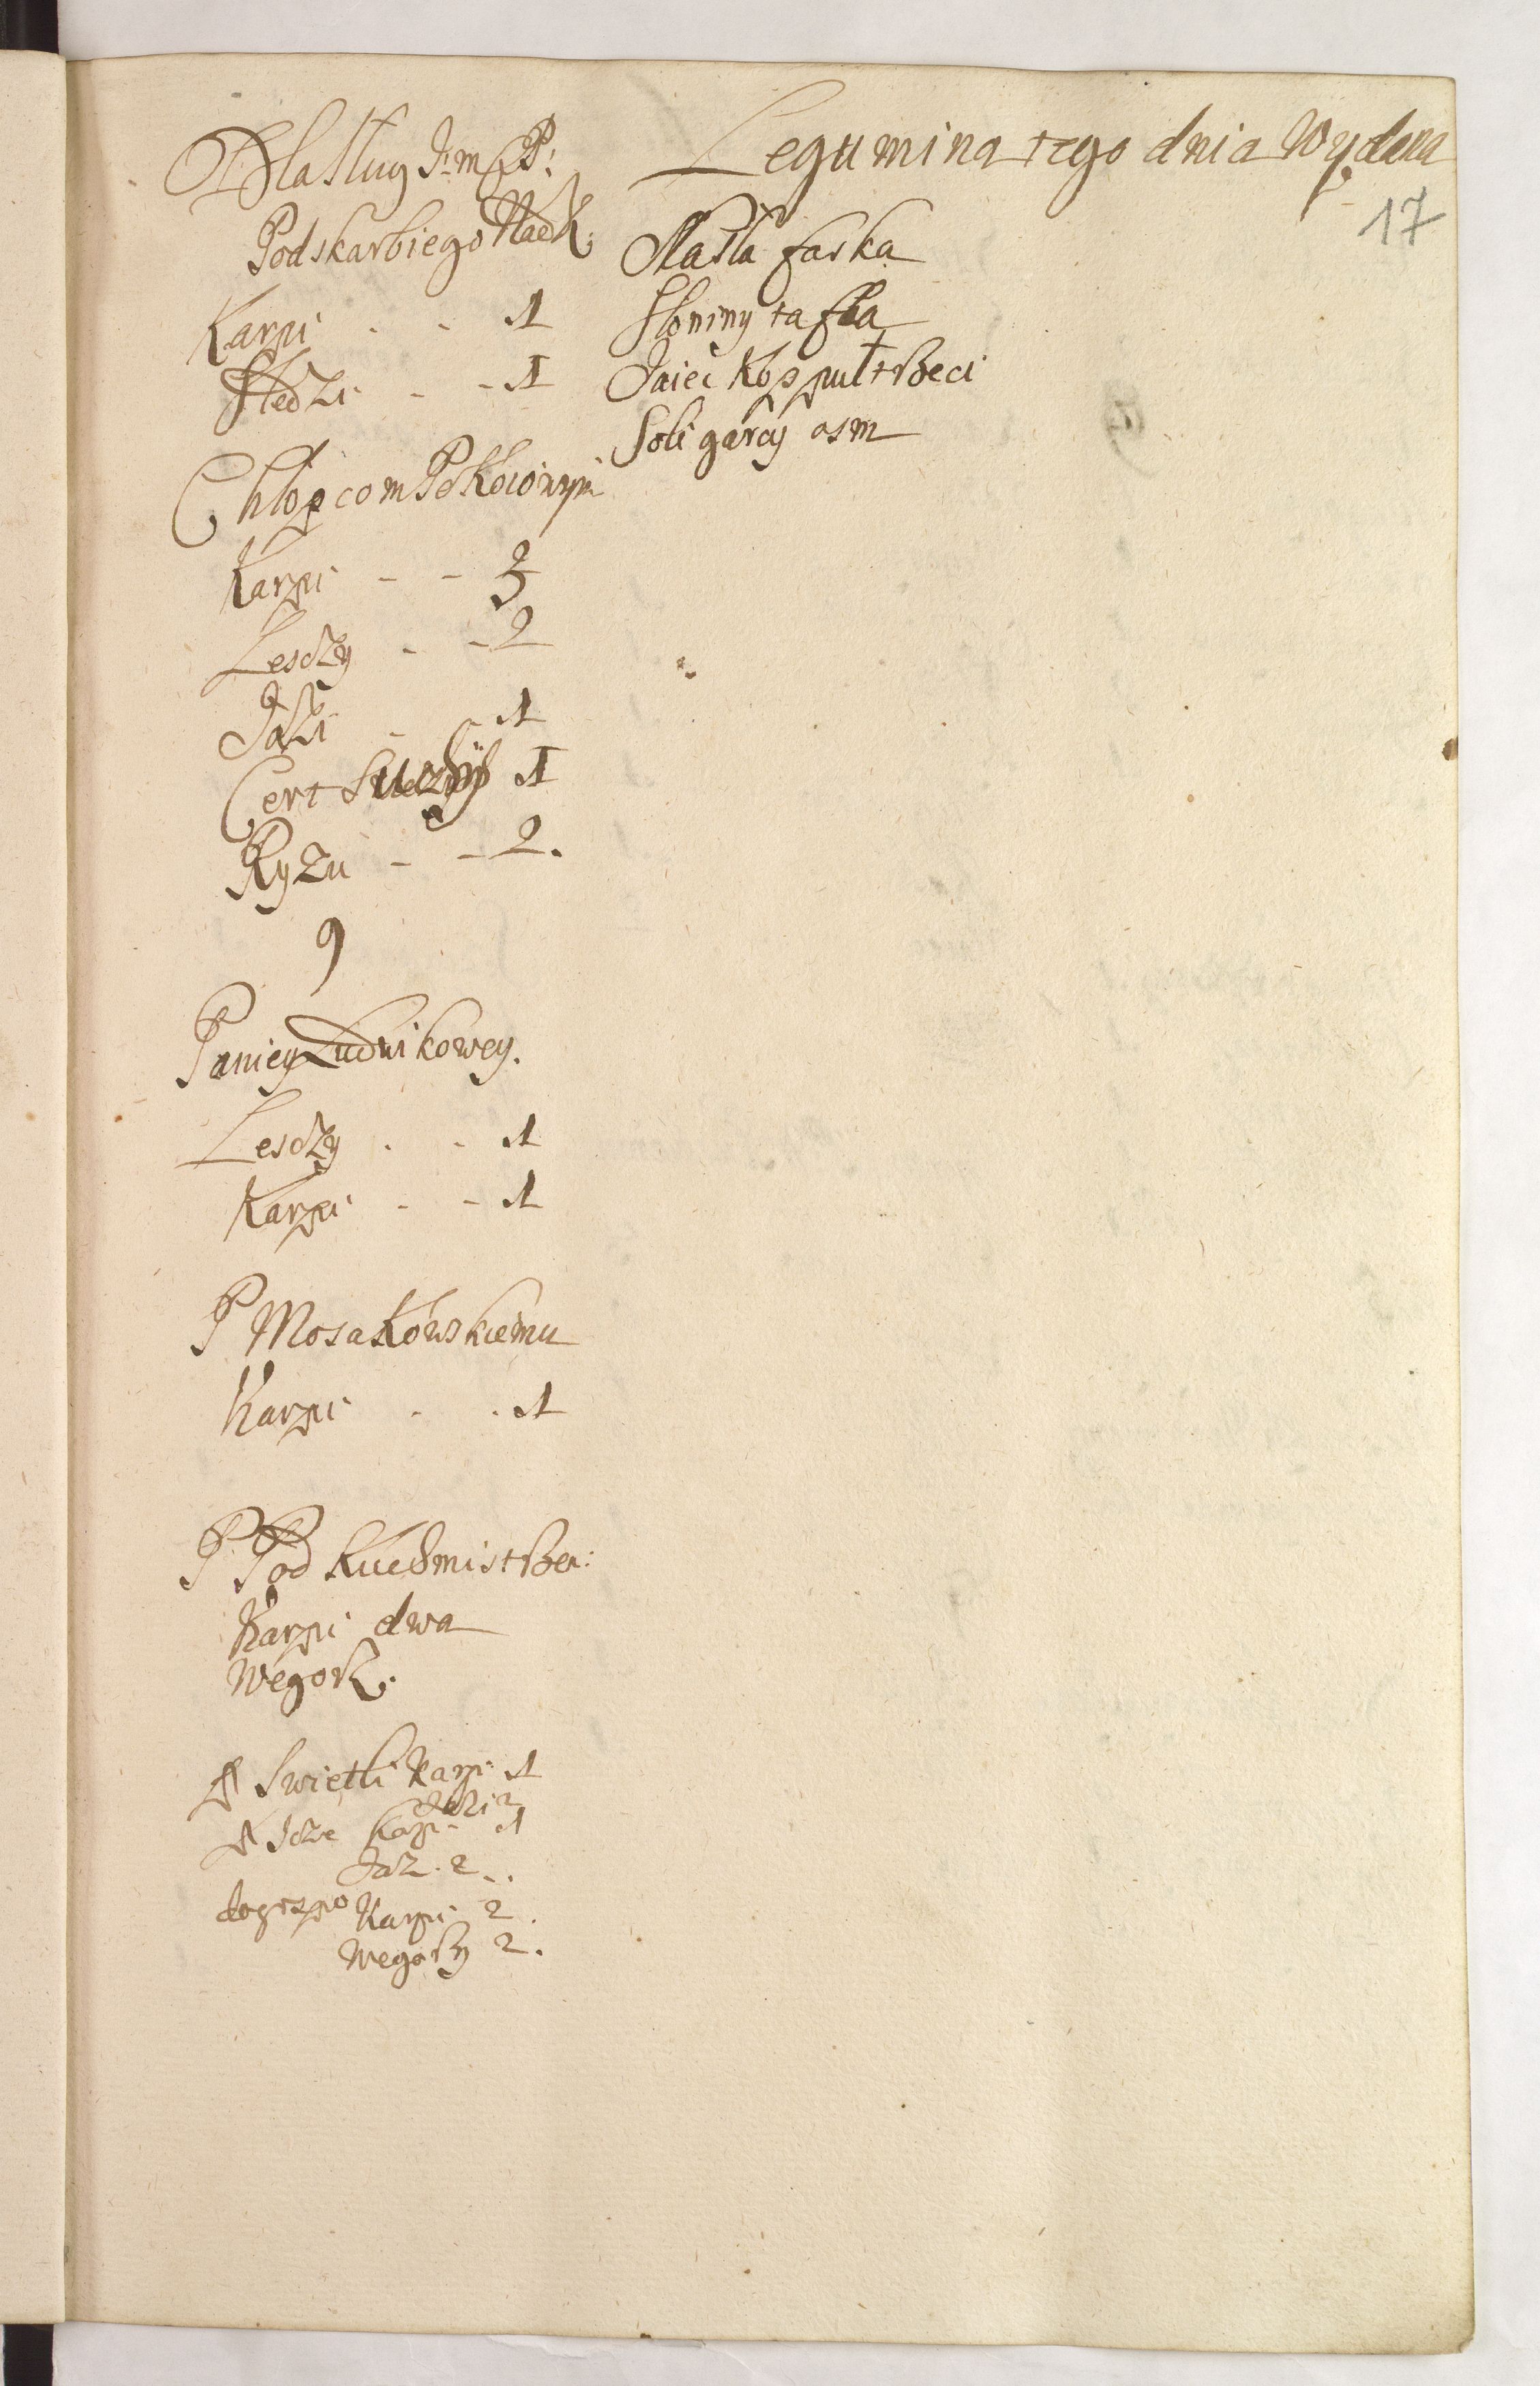 Dla Sług J: m P:
Podskarbiego Nadk:
Karpi . - 1
Sledzi - - 1
Chłopcom Pokoiowym
Karpi - - 3
Lesczy - - 2
Jazi - 1
Cert 1
Ryzu - - 2.
9
Paniey Ludwikowey.
Lesczy . - 1
Karpi - - 1
P Mosakowskiemu
Karpi . . 1
P Podkuchmistrzem:
Karpi dwa
Węgorz.
Swietli Karpi 1
Jazi 2
Karpi 1
Jaz. 2
Karpi 2.
Węgorzy 2.
Legumina tego dnia Wydana
17
Masła faska
Słoniny tafla
Jaiec Kop pułtrzeci
Soli garcy osm